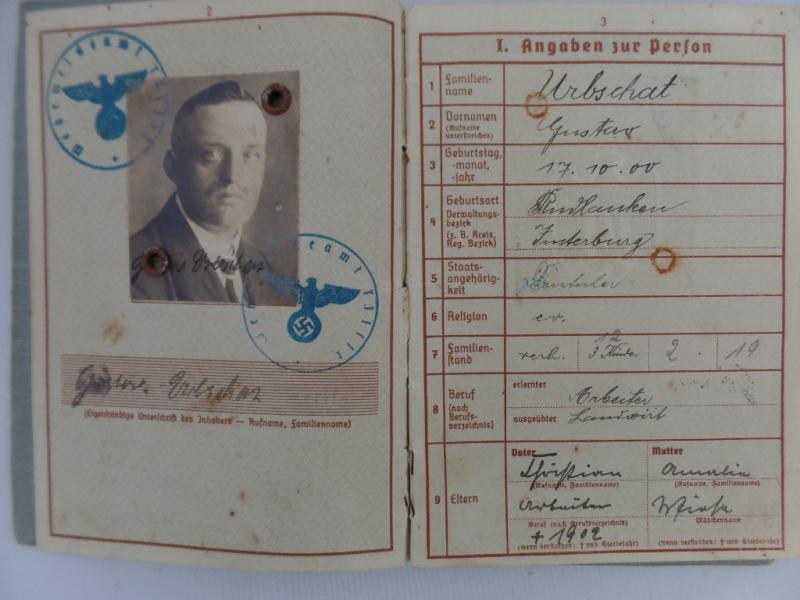 2
Wehrmeldeamt Tilsit
Wehrmeldeamt Tilsit
Gustav Urbschat
Gustav Urbschat
(Eigenhändige Unterschrift des Inhabers — Rufname, Familienname)
3
I. Angaben zur Person
1 Familien-
name
Urbschat
2 Vornamen
(Rufname
unterstreichen)
Gustav
3 Geburtstag,
-monat,
-jahr
17.10.00
4 Geburtsort
Verwaltungs-
bezirk
(z. B. Kreis,
Reg. Bezirk)
Insterburg
5 Staats-
angehörig-
keit
6 Religion
ev.
7 Familien-
stand
verh. 3 Kinder
12
2 . 19
8 Beruf
(nach
Berufs-
verzeichnis)
erlernter
Arbeiter
ausgeübter
Landwirt
9 Eltern
Vater
Christian
(Rufname, Familienname)
Arbeiter
Beruf (nach Berufsverzeichnis)
+ 1902
(wenn verstorben: † und Sterbejahr)
Mutter
Amalie
(Rufname, Familienname)
Mädchenname
(wenn verstorben: † und Sterbejahr)